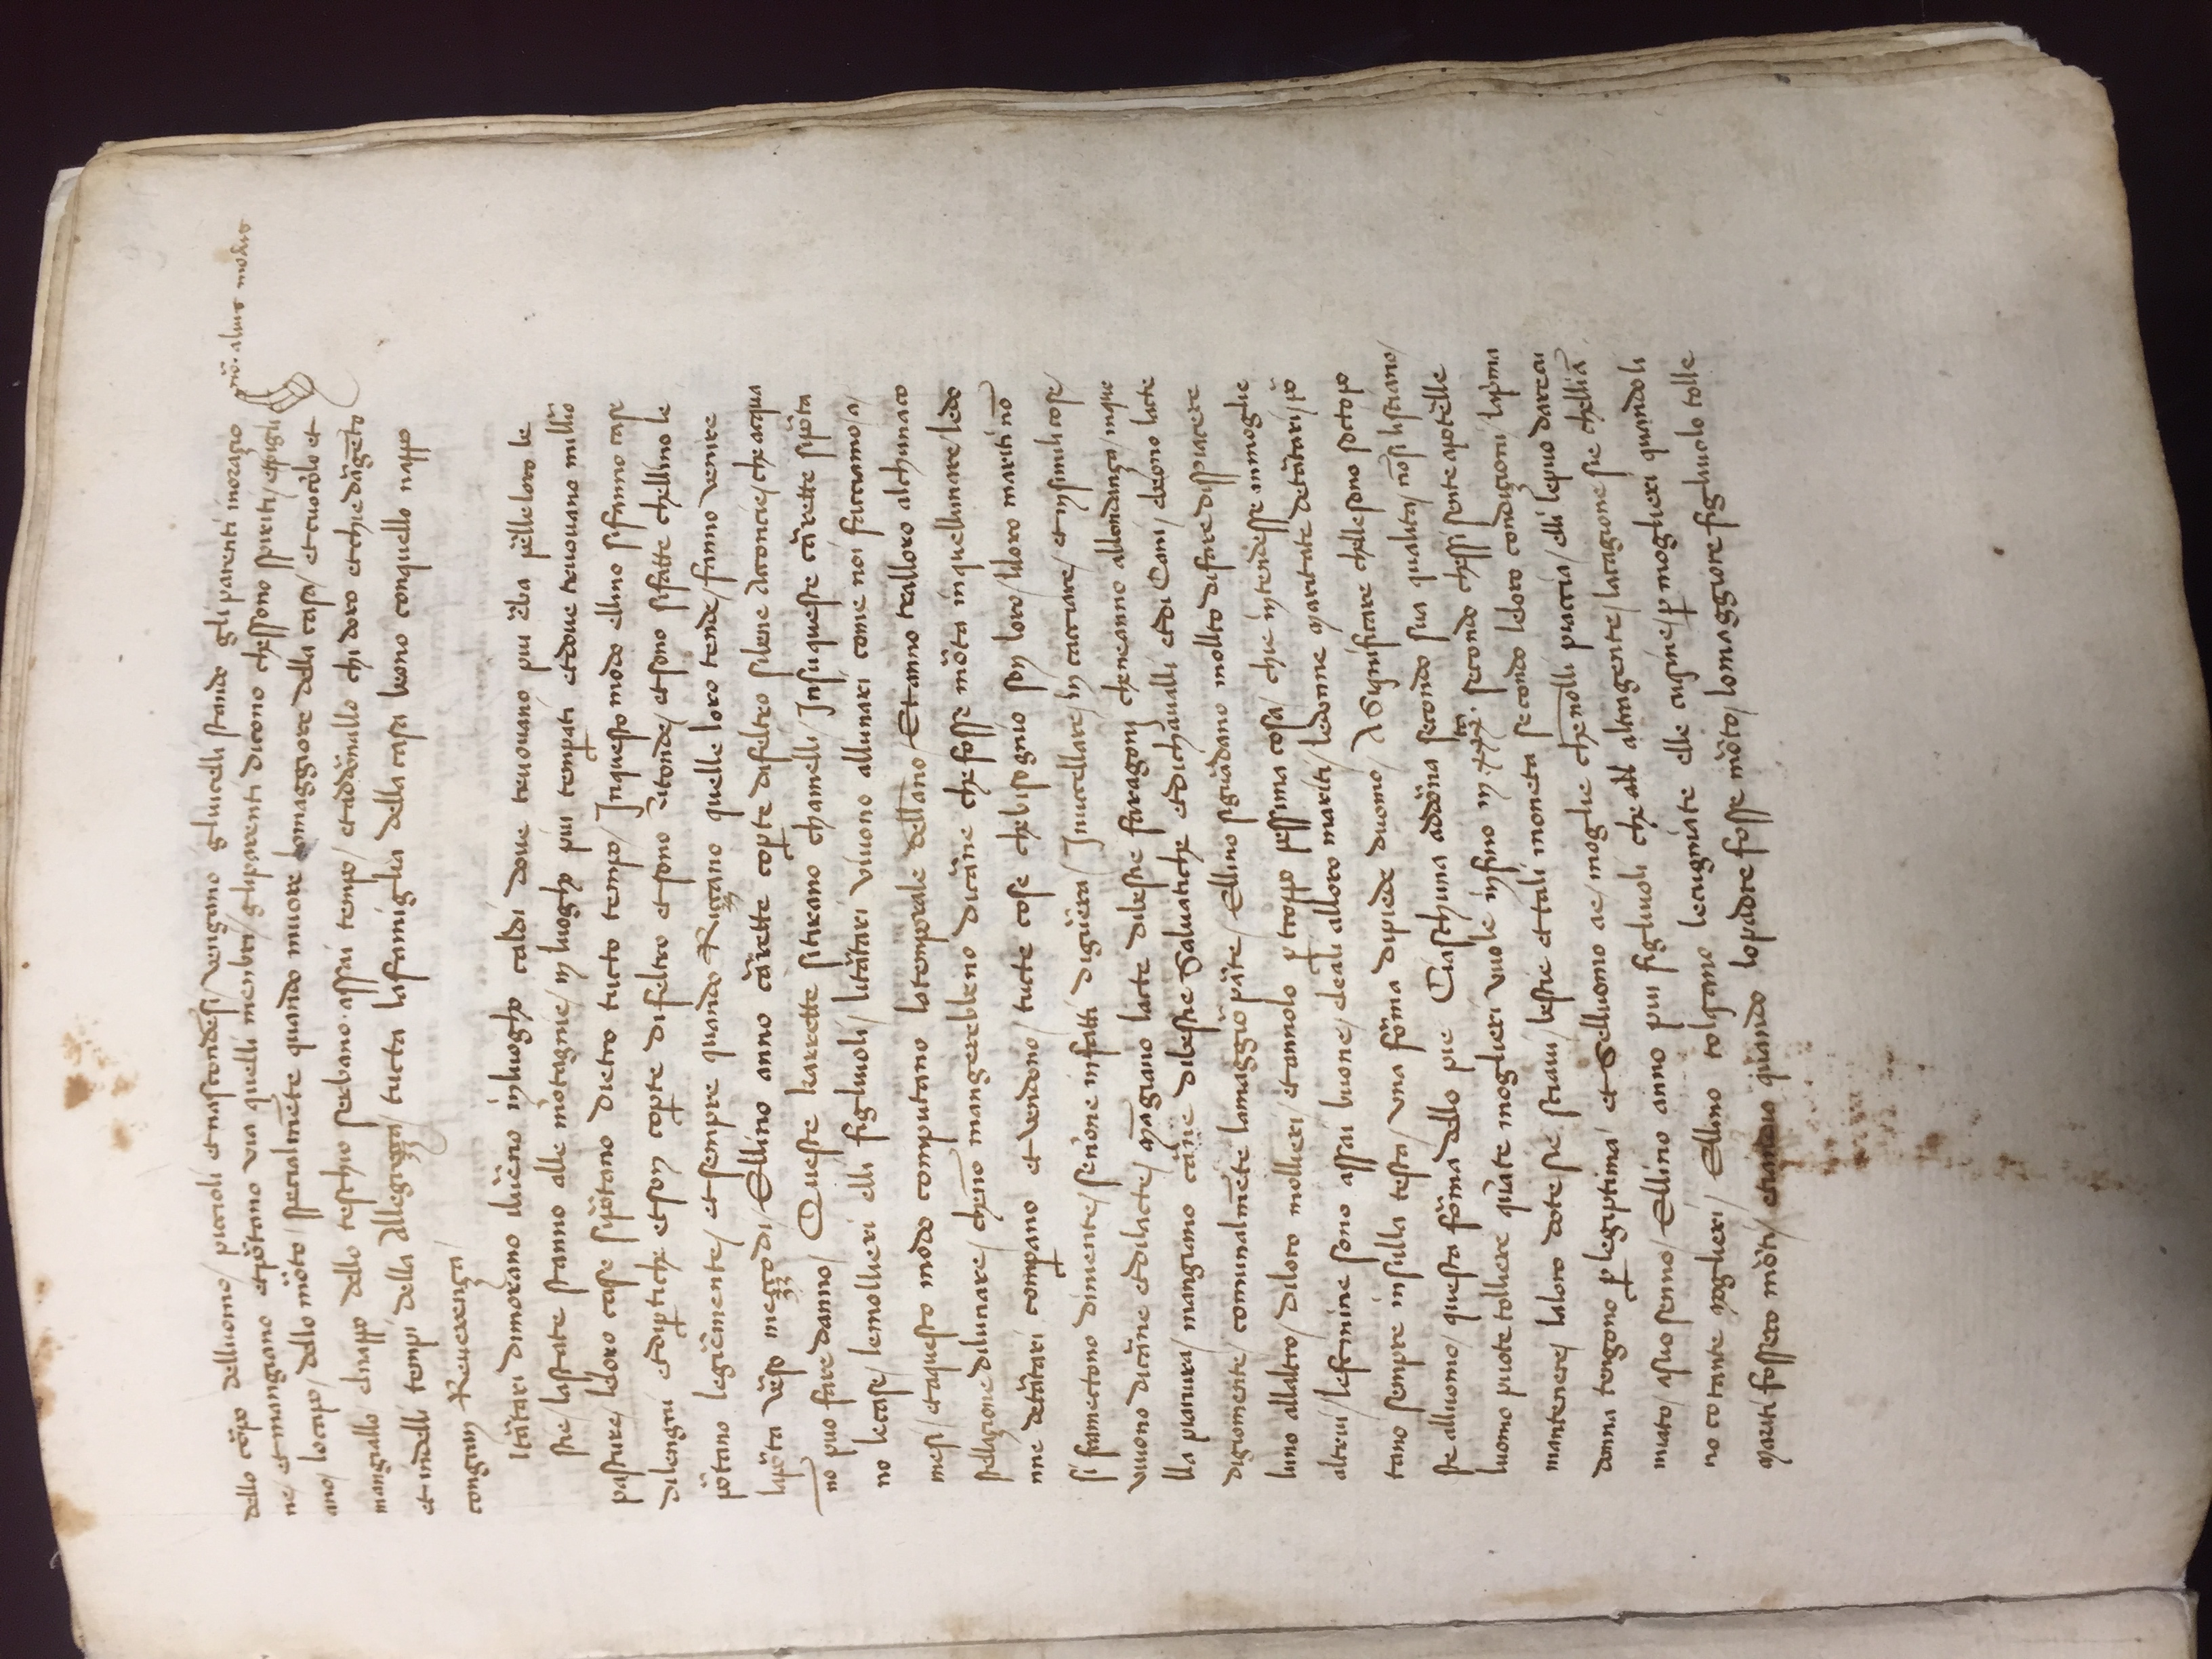 dello cõpo delluomo / piccioli et nascondẽsi / vengano gluicelli stando gli parenti inorazio
nõ. alius modus
ne / et mangiano et põtano via quelli menbri / gliparenti dicono chessono spiriti / et pigli
ano / locapo / dello mõto / specialmẽte quando muore lomaggiore della casa / et cuocõlo et
mangiallo elnappo dello teschio serbano . assai tempo / et addõnallo chi doro et chie dãgẽto
et indelli tempi della Allegrezza / tucta lafamiglia della casa beono conquello nappo
congran Reverenza /
Itãtari dimorano iluẽno in luogho caldi dove truovano piu ẽba pẽlle loro be
stie / lastate stanno alle mõtagnie / in luogho piu temperati et dove truovano millio
pasture / leloro case sipõtano dietro tucto tempo / Inquesto modo ellino sifanno case
dilengni et dipertiche et son coperte difeltro et sono ritonde / et sono sifatte chellino le
põtano legiẽmente / et sempre quando Rizzano quelle loro tende / fanno venire
lapõta vẽso mezzodi / Ellino anno cãrette coperte difeltro silene Acconcie / che acqua
nõ puo fare danno / Queste karrette sitirano chamelli / Insu queste cãrette sipõta
no lecase / lemollieri elli figliuoli / litãtari vivono allunari come noi facciamo / a /
mesi / et aquesto modo computano lotemporale dellãno / Et anno tralloro alchuna co
stellazione dilunare / chenõ mangerebbeno dicãne che fosse mõta in quellunare / ledo
nne detãtari comperano et vendono / tucte cose chebisognio son loro / liloro mariti nõ
si framectono diniente / senõne infatti diguẽra / Inuccellare / in cacciare / et insimili cose /
vivono dicãne et dilacte / Mãgiano lacte dibestie faragoni cheneanno abbondanza / inque
lla pianura / mangiano cãne dibestie Salvatiche et dichavalli et di Cani / ebeono lacte
digiomente / comunalmẽte lamaggiõ pãte / Ellino siguãdano mollto difare dispiacere
luno allaltro / diloro mollieri / et annolo p troppo pessima cosa / chie intendesse inmoglie
altrui / lefemine sono assai buone / eleali alloro mariti / ledonne Maritate detãtari / põ
tano sempre insulla testa / una fõma dipiede duomo / A Significare chellesono soctopo
ste alluomo / questa fõma dello pie Ciaschuna addõna secondo sua qualita / nõsi lisciano /
luomo puote tolliere quãte moglieri vuole infino in . xxx ta . secondo chessi sente apotẽlle
mantenere / laloro dote sie sciavi / bestie et tali moneta secondo leloro condizioni / laprima
donna tengono p legiptima et Selluomo ae / moglie chenõlli piaccia / elli lepuo darecu
miato / asuo senno / Ellino anno piu figliuoli che all altragente / lacagione sie chelliã
no cotante moglieri / Ellino tolgano lecugniate elle cugine / p moglieri quandoli
Mariti fossero mõti / etiandio quando lopadre fosse mõto / lomaggiore figliuolo tolle